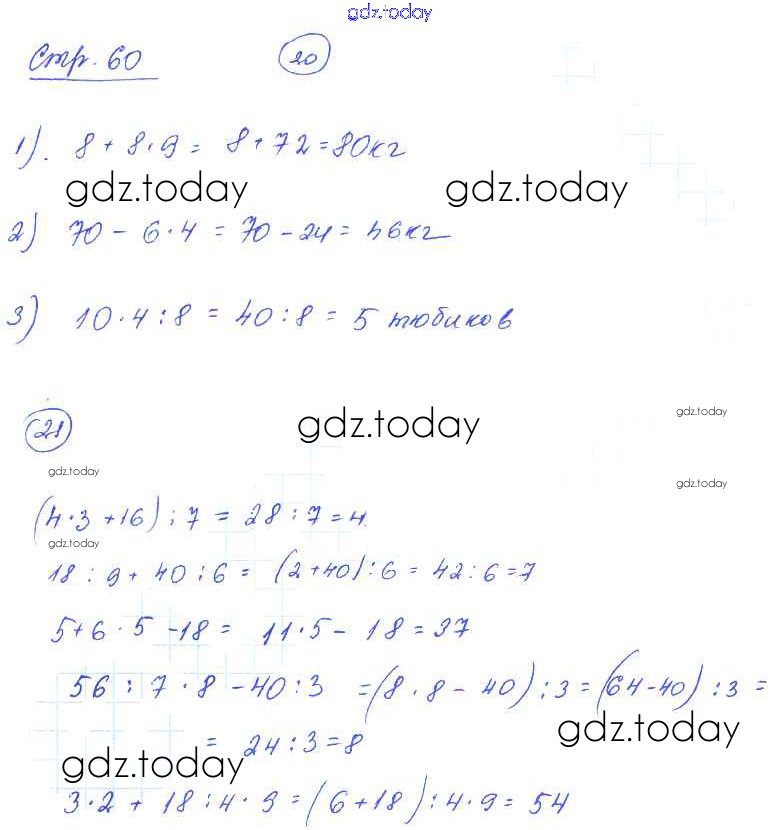 gdz.today
Стр. 60 20
1). 8 + 8 · 9 = 8 + 72 = 80кг
gdz.today gdz.today
2) 70 - 6 · 4 = 70 - 24 = 46кг
3) 10 · 4 : 8 = 40 : 8 = 5 тюбиков
gdz.today
21 gdz.today
gdz.today
gdz.today
(4 · 3 + 16) : 7 = 28 : 7 = 4.
gdz.today
18 : 9 + 40 : 6 = (2 + 40) : 6 = 42 : 6 = 7
5 + 6 · 5 - 18 = 11 · 5 - 18 = 37
56 : 7 · 8 - 40 : 3 = (8 · 8 - 40) : 3 = (64 - 40) : 3 =
gdz.today
= 24 : 3 = 8
gdz.today
3 · 2 + 18 : 4 · 9 = (6 + 18) : 4 · 9 = 54